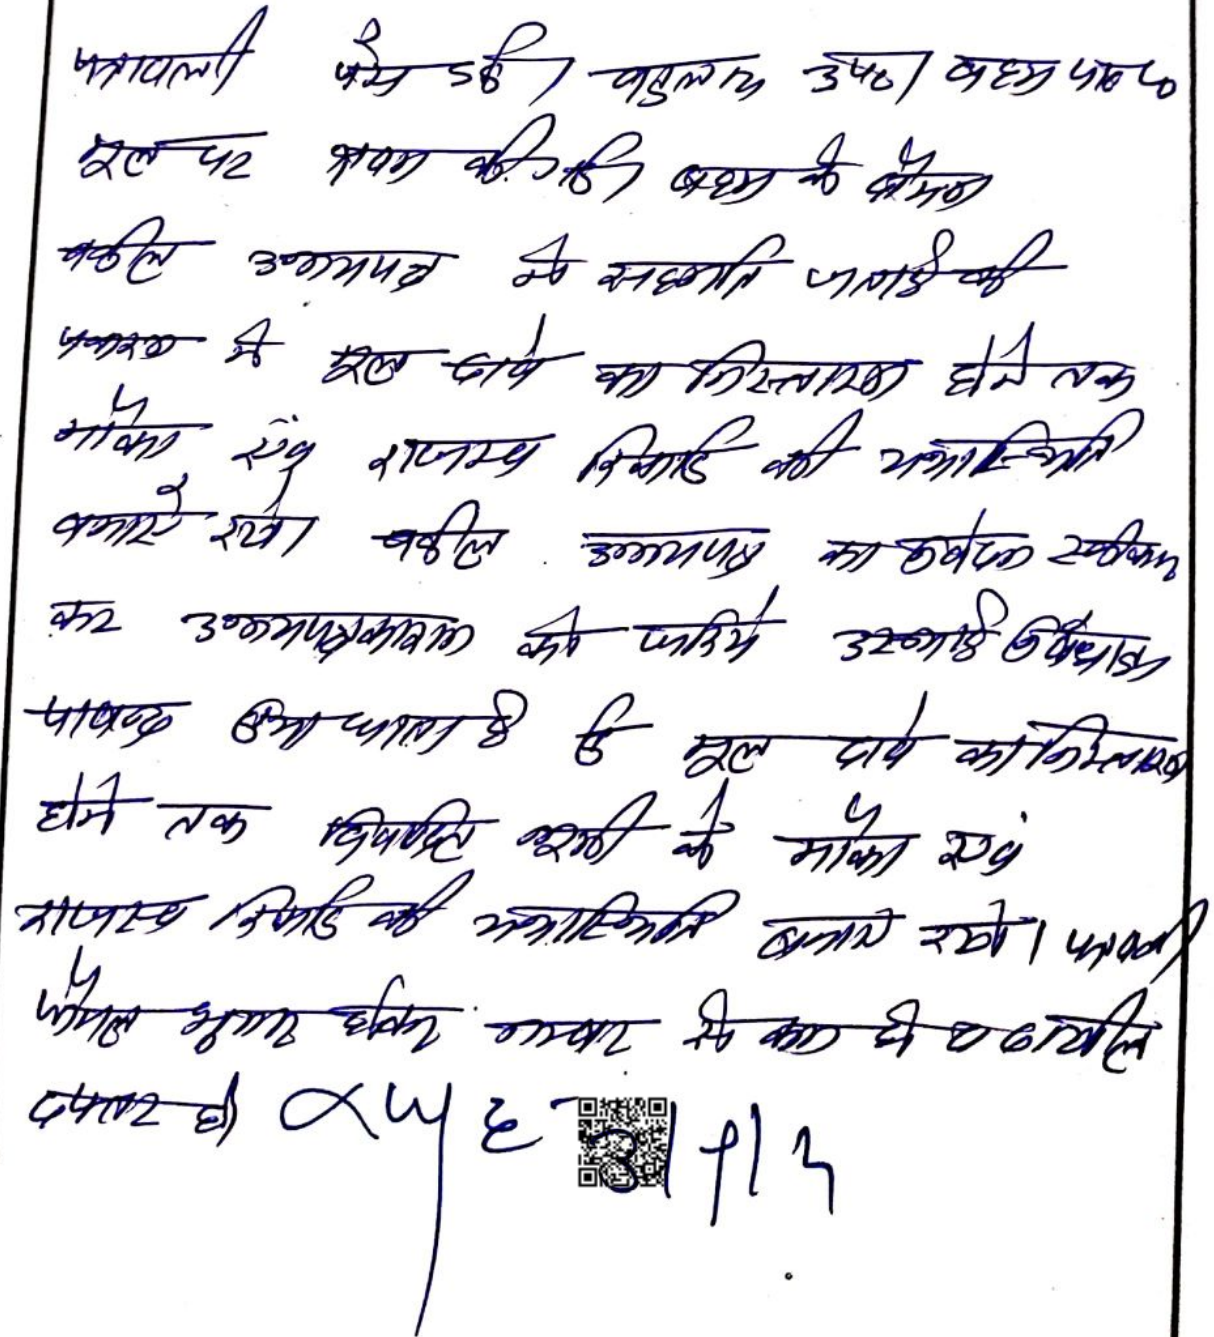 पत्रावली पेश हुई। वकुलाय उप०। बहस प्रा०प०
मूल पर श्रवण की गई। बहस के दौरान
वकील उभयपक्ष ने सहमति जताई की
प्रकरण में मूल दावे का निस्तारण होने तक
मौका एवं राजस्व रिकार्ड की यथास्थिति
बनाऐ रखे। वकील उभयपक्ष का कथन स्वीकार
कर उभयपक्षकारान को जरिये अस्थाई निषेधाज्ञा
पाबन्द किया जाता है कि मूल दावे का निस्तारण
होने तक विवादित भूमी के मौका एवं
राजस्व रिकार्ड की यथास्थिति बनाये रखे। पत्रावली
फैसल शुमार होकर नम्बर से कम हो व दाखिल
दफ्तर हो।